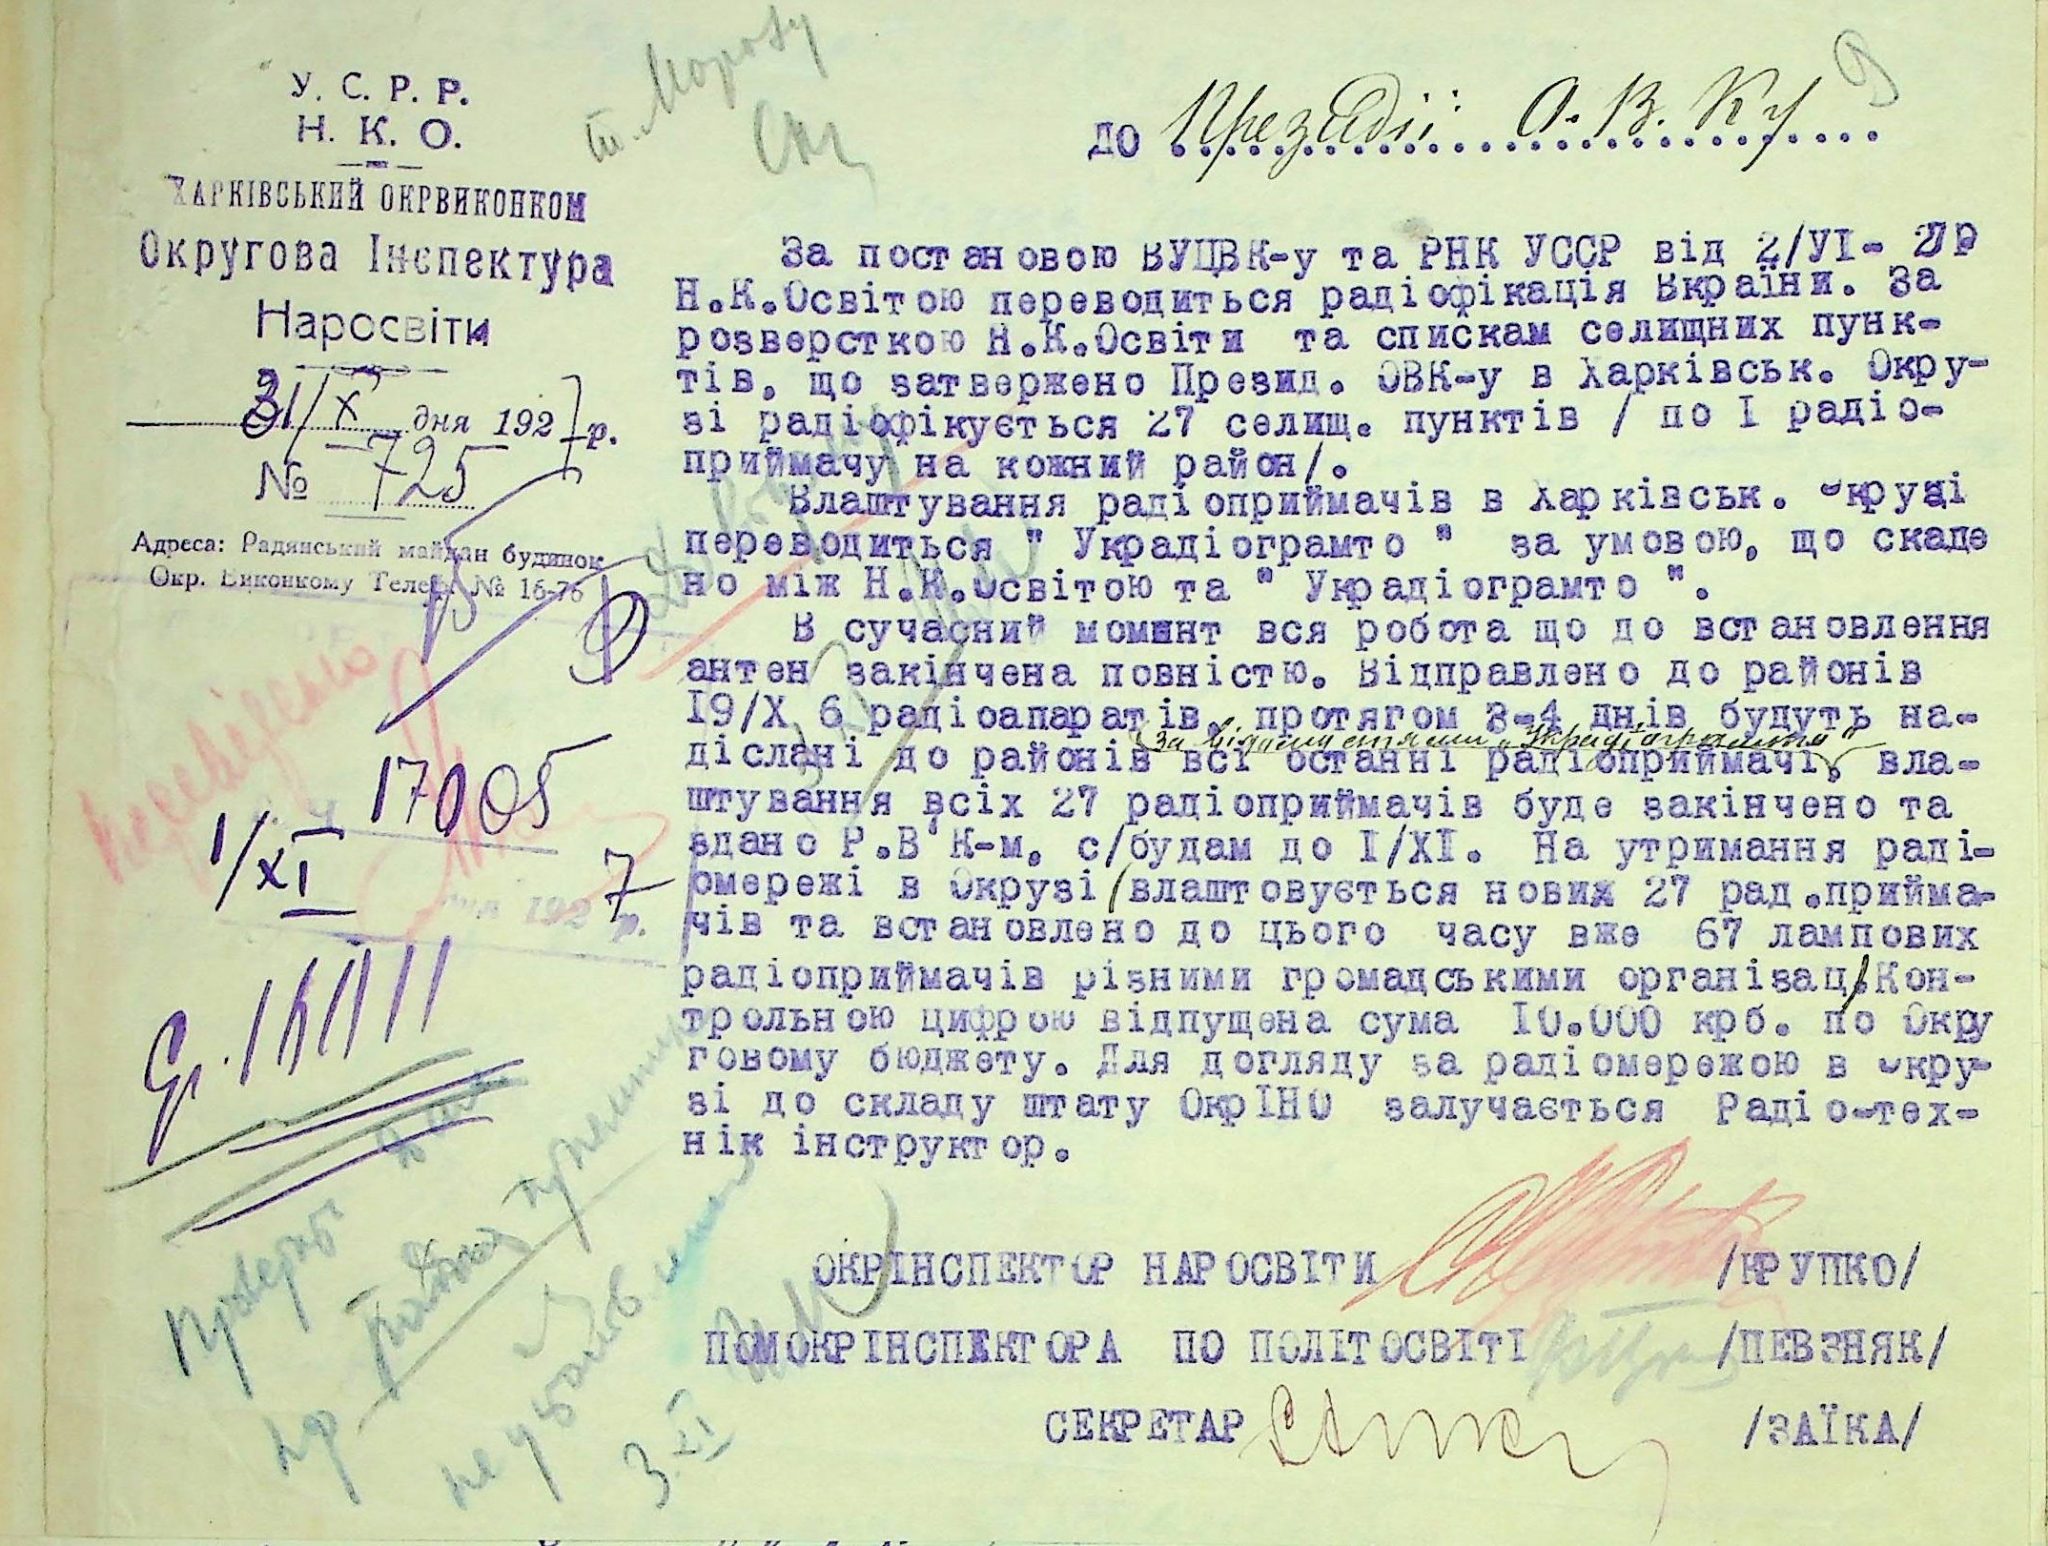 У. С. Р. Р.
Н. К. О.
ХАРКІВСЬКИЙ ОКРВИКОНКОМ
Округова Інспектура
Наросвіти
31/X дня 1927 р.
№ 725
Адреса: Радянський майдан будинок
Окр. Виконкому Телеф. № 16-76
т. Морозу
ДО Президії О. В. Ку
За постановою ВУЦВК-у та РНК УССР від 2/УІ- 27р
Н.К.Освітою переводиться радіофікація Вкраїни. За
розверсткою Н.К.Освіти та спискам селищних пунк-
тів, що затвержено Презид. ОВК-у в Харківськ. Окру-
зі радіофікується 27 селищ. пунктів / по І радіо-
приймачу на кожний район/.
Влаштування радіоприймачів в Харківськ. Окрузі
переводиться " Украдіограмто " за умовою, що складе
но між Н.К.Освітою та " Украдіограмто ".
В сучасний момент вся робота що до встановлення
антен закінчена повністю. Відправлено до районів
І9/Х 6 радіоапаратів, протягом 3-4 днів будуть на-
за відомостями "Украдіограмто"
діслані до районів всі останні радіоприймачі, вла-
штування всіх 27 радіоприймачів буде закінчено та
здано Р.В К-м, с/будам до І/ХІ. На утримання раді-
омережі в Окрузі /влаштовується нових 27 рад.прийма-
чів та встановлено до цього часу вже 67 лампових
радіоприймачів різними громадськими організац/.Кон-
трольною цифрою відпущена сума І0.000 крб. по Окру
говому бюджету. Для догляду за радіомережою в Окру-
зі до складу штату ОкрІНО залучається Радіо-тех-
нік інструктор.
17005
1/XI 7 р.
ОКРІНСПЕКТОР НАРОСВІТИ /КРУПКО/
ПОМОКРІНСПЕКТОРА ПО ПОЛІТОСВІТІ /ПЕВЗНЯК/
СЕКРЕТАР /ЗАЇКА/
3.XI